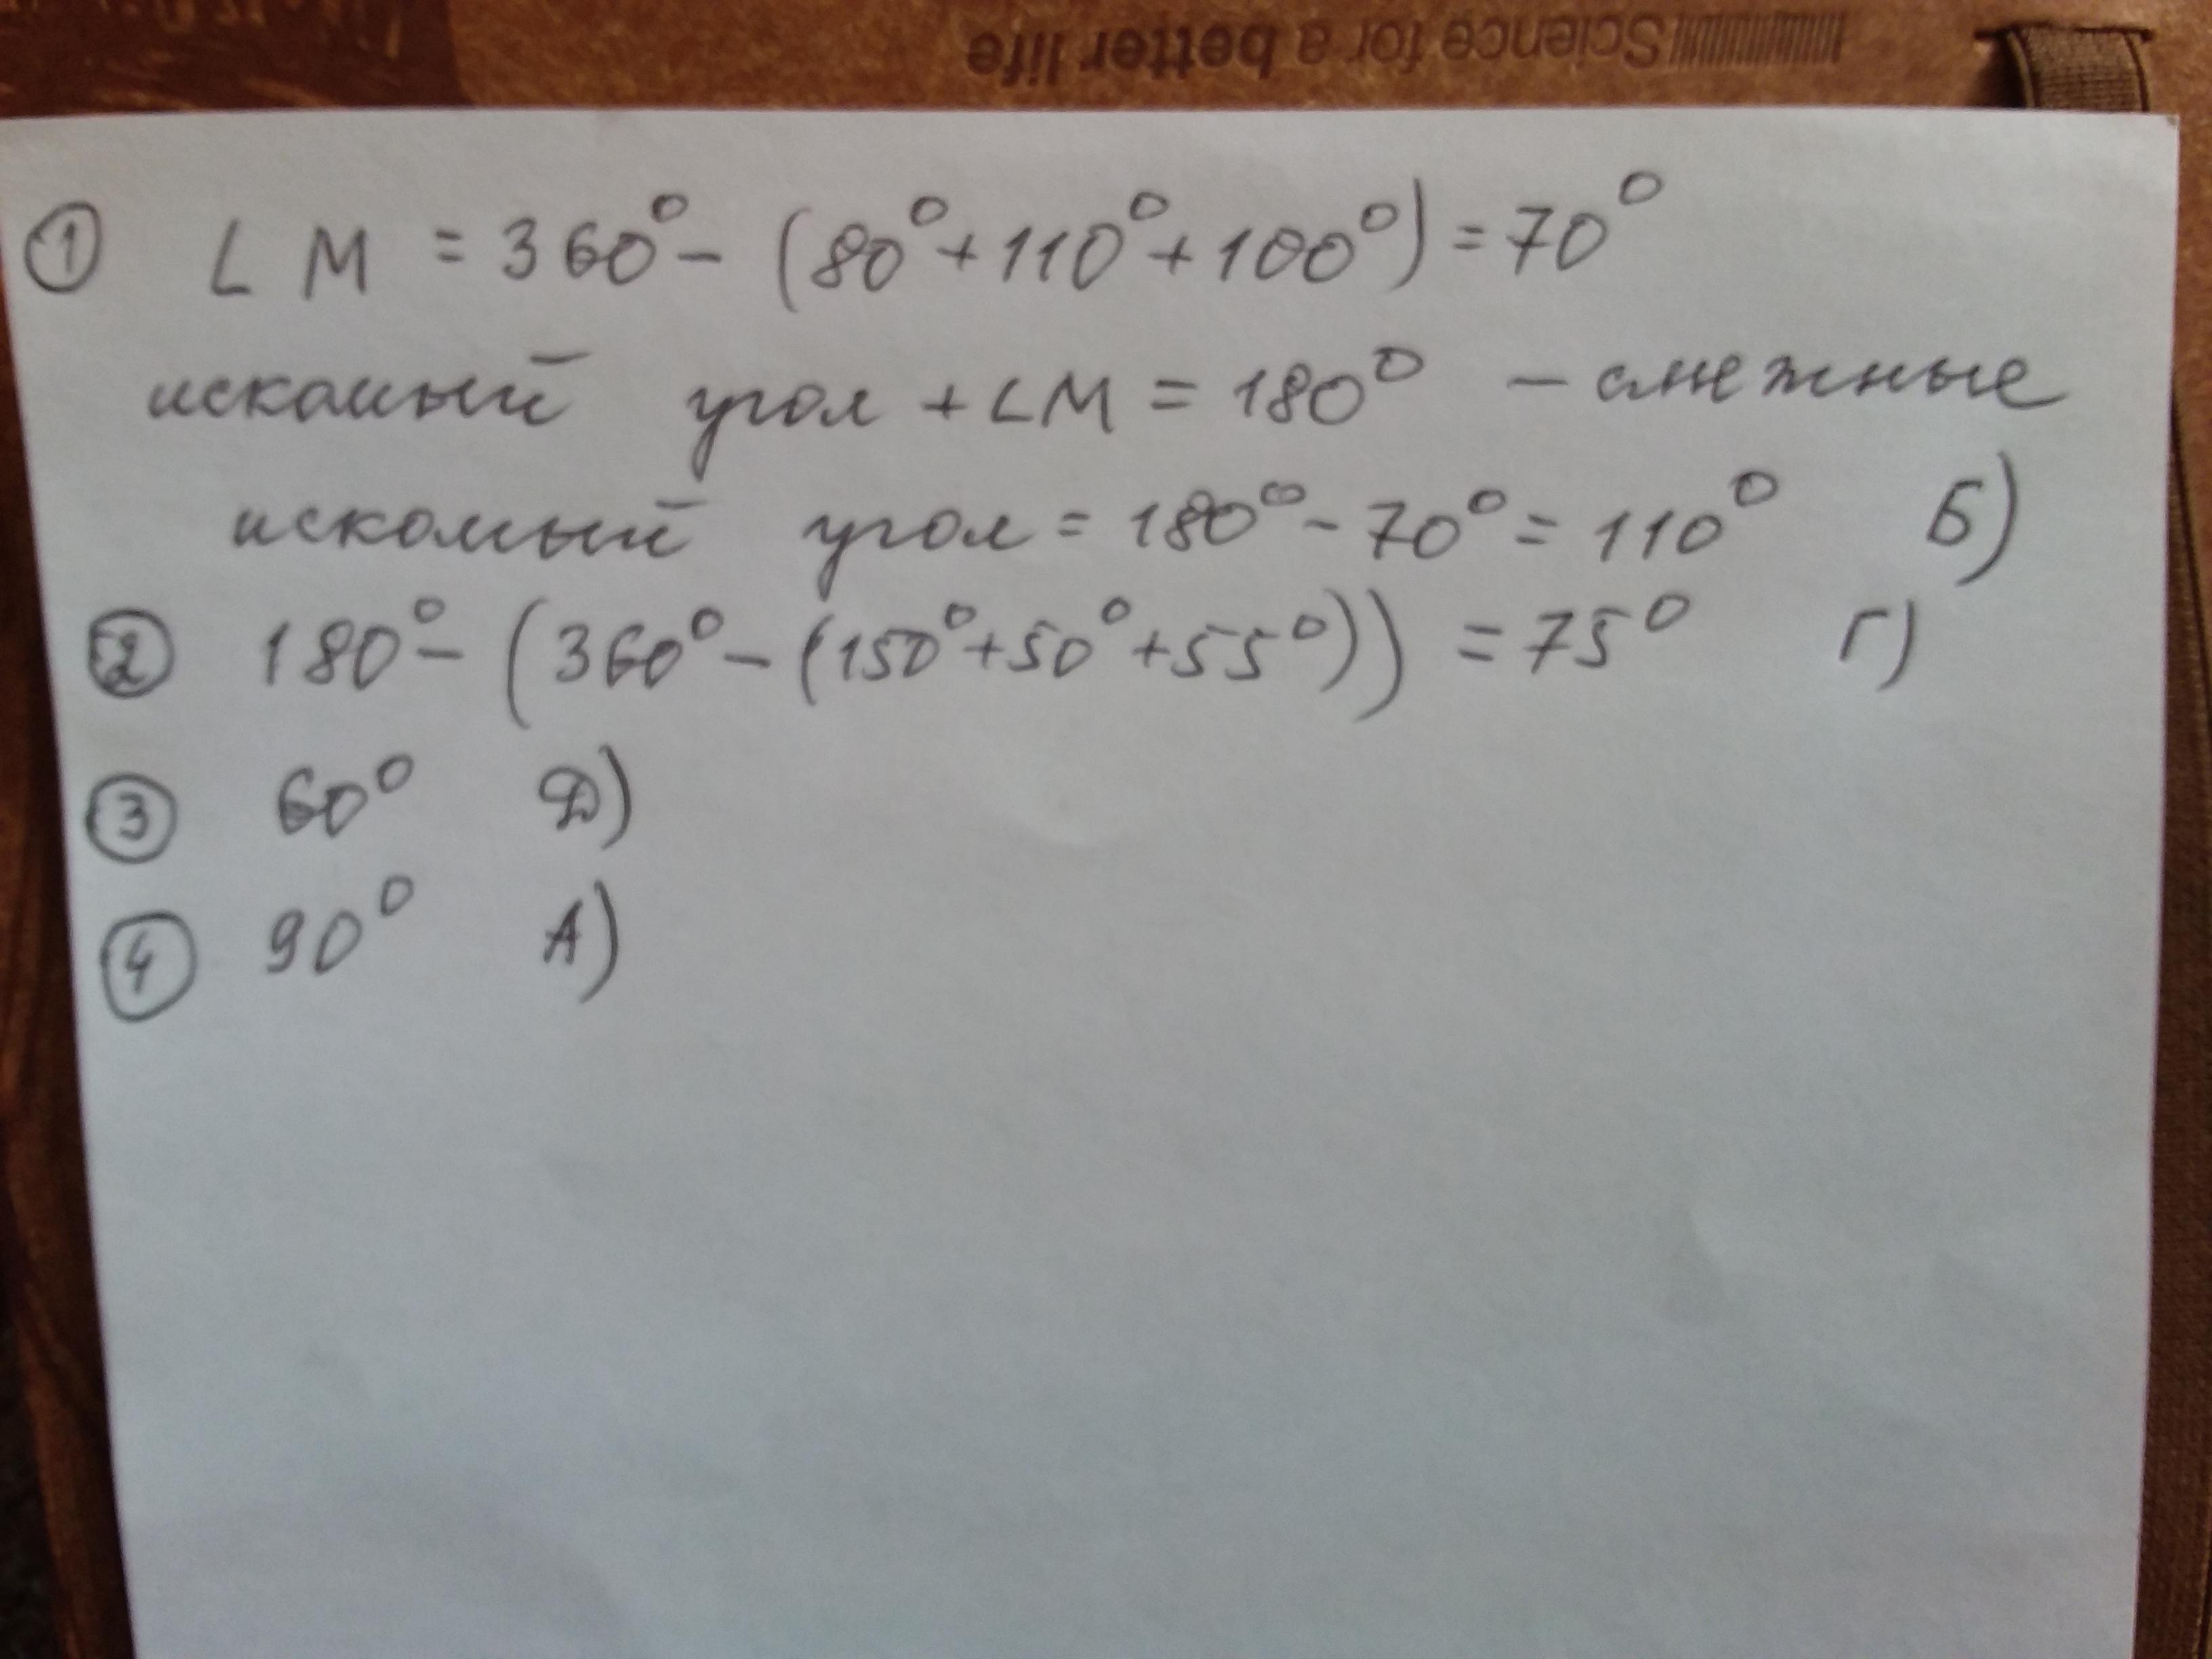 Science for a better life
① ∠M = 360° - (80° + 110° + 100°) = 70°
искомый угол + ∠M = 180° - смежные
искомый угол = 180° - 70° = 110° Б)
② 180° - (360° - (150° + 50° + 55°)) = 75° Г)
③ 60° Д)
④ 90° А)